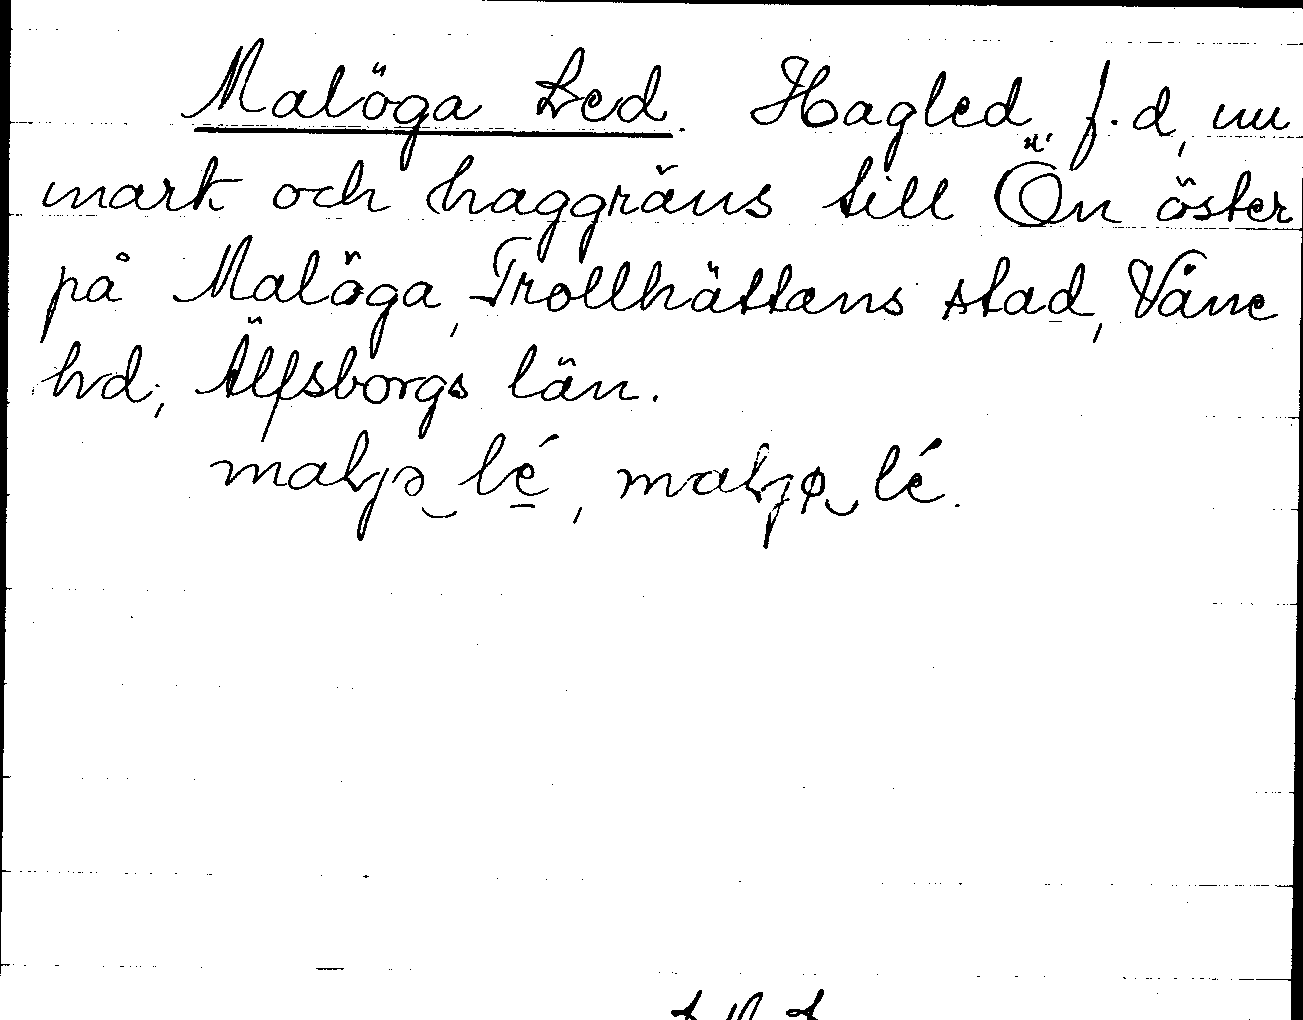 Malöga Led. Hagled f.d, nu
mark och haggräns till Ön öster
på Malöga, Trollhättans stad, Våne
hd, Älfsborgs län.